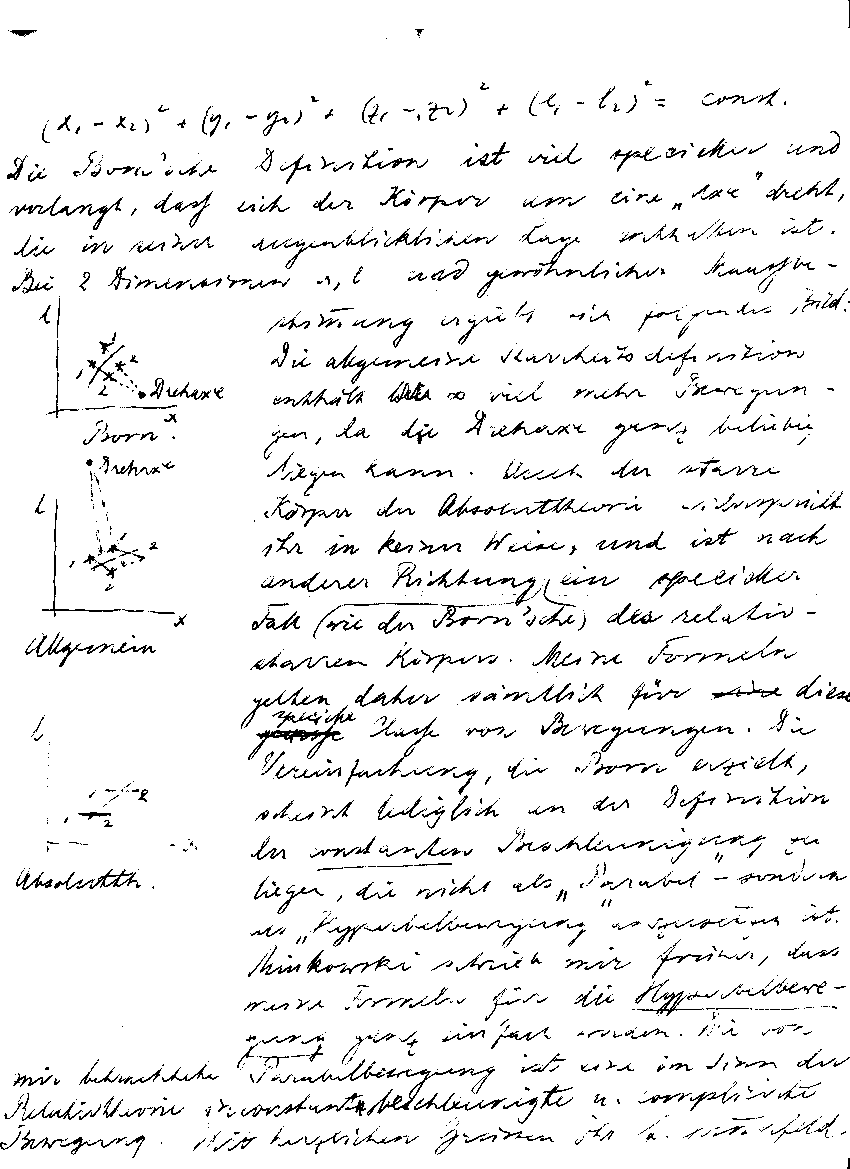 (x₁ – x₂)² + (y₁ – y₂)² + (z₁ – z₂)² + (l₁ – l₂)² = const.
Die Born'sche Definition ist viel specieller und
verlangt, dass sich der Körper um eine „Axe" dreht,
die in seiner augenblicklichen Lage enthalten ist.
Bei 2 Dimensionen x, l und gewöhnlicher Maassbe-
stimmung ergiebt sich folgendes Bild:
l
1
2
1
2
Drehaxe
x
Born.
Die allgemeine Starrheitsdefinition
enthält viel mehr Bewegun-
gen, da die Drehaxe ganz beliebig
liegen kann. Auch der starre
Drehaxe
l
1
2
1
2
x
Allgemein
Körper der Absoluttheorie widerspricht
ihr in keiner Weise, und ist nach
anderer Richtung ein specieller
Fall (wie der Born'sche) des relativ-
starren Körpers. Meine Formeln
gelten daher sämtlich für eine diese
specielle
Classe von Bewegungen. Die
l
1
2
1
2
x
Absolutth.
Vereinfachung, die Born erzielt,
scheint lediglich an der Definition
der constanten Beschleunigung zu
liegen, die nicht als „Parabel"- sondern
als „Hyperbelbewegung" anzusetzen ist.
Minkowski schrieb mir früher, dass
meine Formeln für die Hyperbelbewe-
gung ganz einfach werden. Die von
mir betrachtete Parabelbewegung ist eine im Sinn der
Relativtheorie inconstant beschleunigte u. complicirte
Bewegung. Mit herzlichen Grüssen Ihr